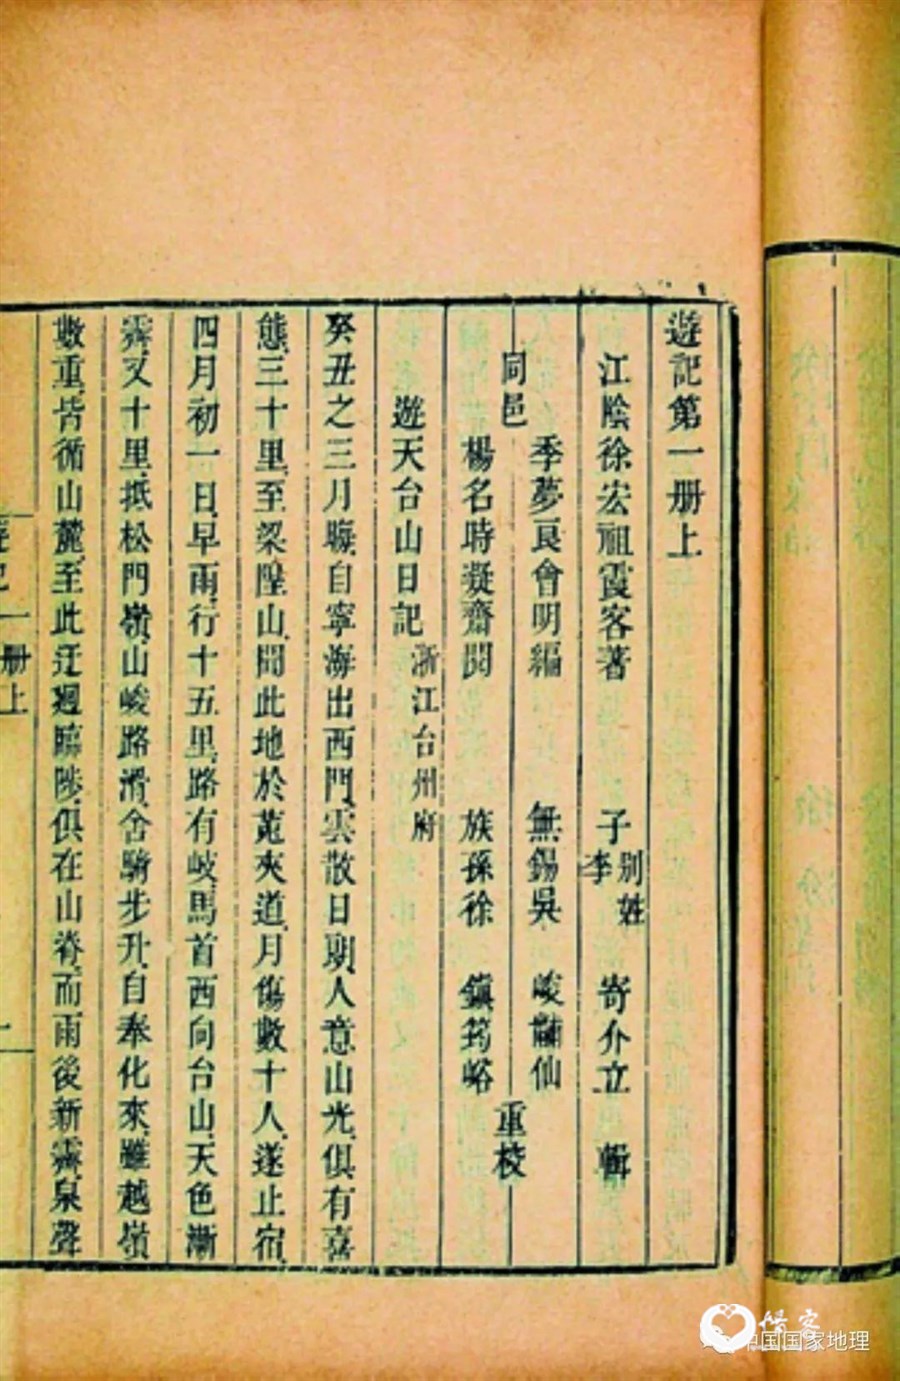 遊記第一册上
江陰徐宏祖霞客著 子 别姓李 寄介立 輯
同邑
季夢良會明編 無錫吳 峻 仙
楊名時凝齋閱 族孫徐 鎮筠峪
重校
遊天台山日記 浙江台州府
癸丑之三月晦、自寧海出西門、雲散日朗、人意山光、俱有喜
態、三十里、至梁隍山、聞此地於菟夾道、月傷數十人、遂止宿、
四月初一日、早雨、行十五里、路有岐、馬首西向台山、天色漸
霽、又十里、抵松門嶺、山峻路滑、舍騎步升、自奉化來、雖越嶺
數重、皆循山麓、至此迂迴臨陟、俱在山脊、而雨後新霽、泉聲
遊記一册上